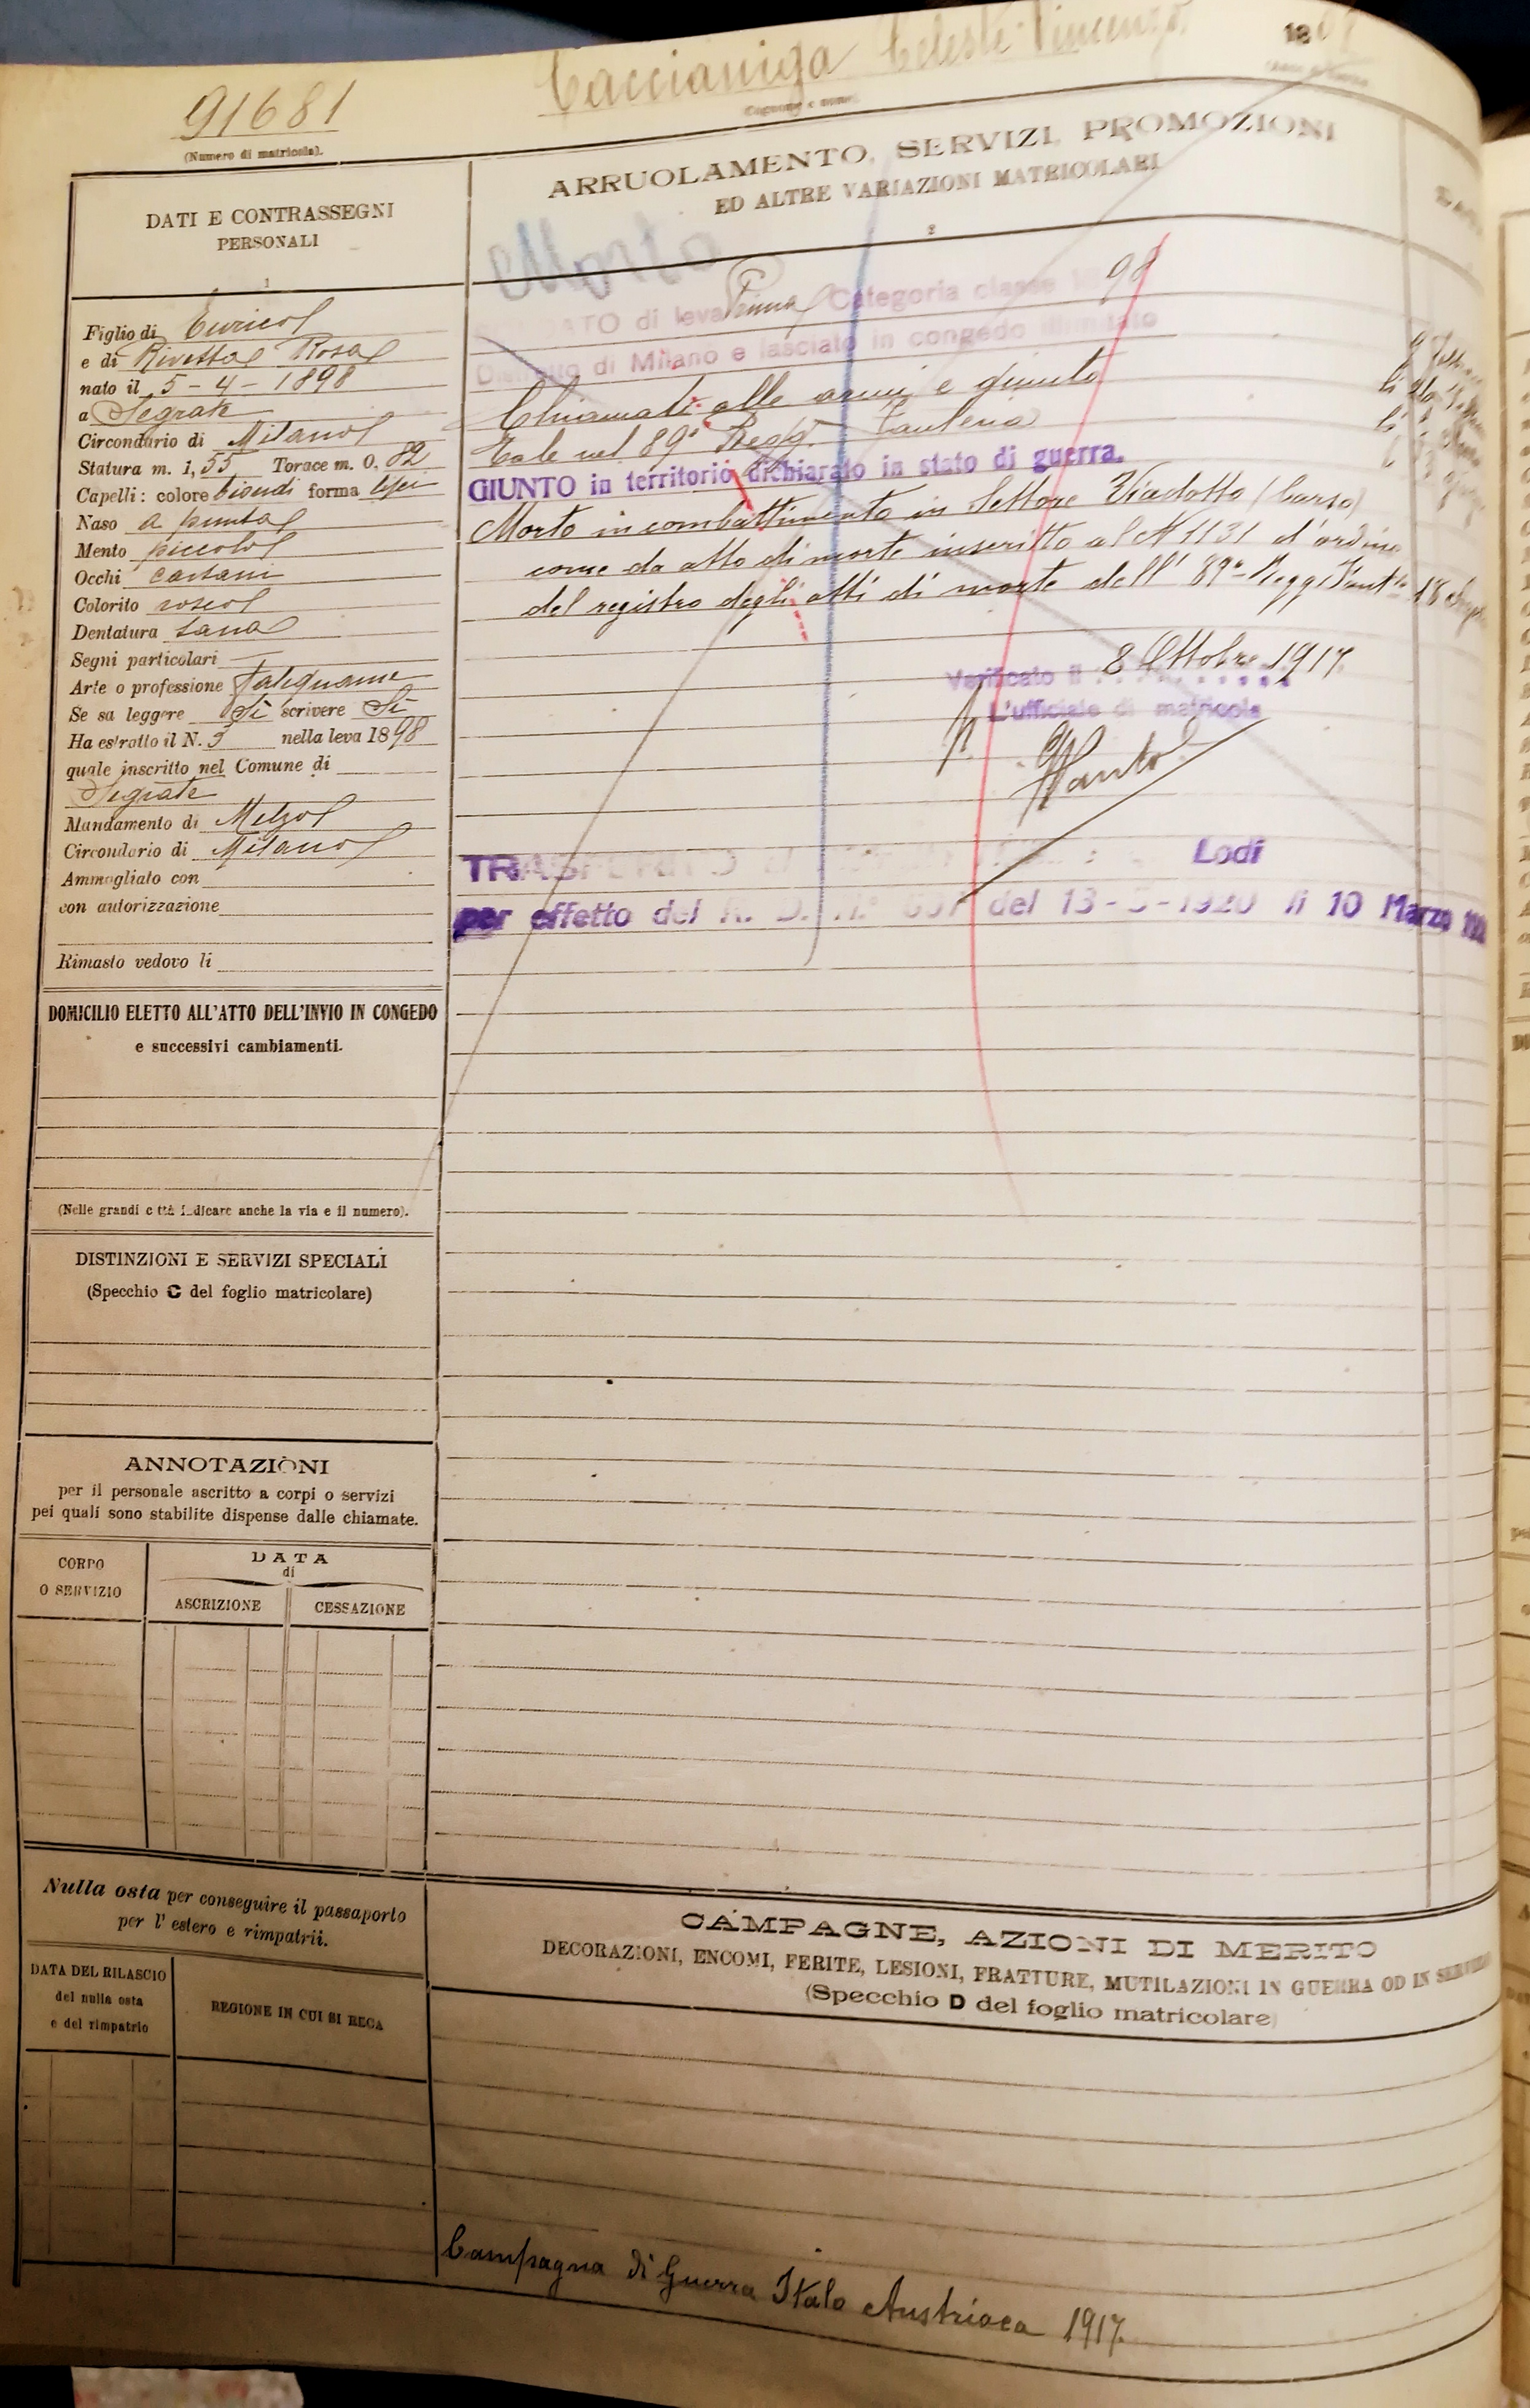 91681
(Numero di matricola).
Caccianiga Celeste Vincenzo
Cognome e nome
1898
DATI E CONTRASSEGNI
PERSONALI
1
Figlio di Enrico
e di Rivetta Rosa
nato il 5-4-1898
a Segrate
Circondario di Milano
Statura m. 1, 55 Torace m. 0, 82
Capelli: colore biondi forma lisci
Naso a punta
Mento piccolo
Occhi castani
Colorito roseo
Dentatura sana
Segni particolari
Arte o professione falegname
Se sa leggere Sì scrivere Sì
Ha estratto il N. 3 nella leva 1898
quale inscritto nel Comune di
Segrate
Mandamento di Melzo
Circondario di Milano
Ammogliato con
con autorizzazione
Rimasto vedovo li
DOMICILIO ELETTO ALL'ATTO DELL'INVIO IN CONGEDO
e successivi cambiamenti.
(Nelle grandi città indicare anche la via e il numero).
DISTINZIONI E SERVIZI SPECIALI
(Specchio C del foglio matricolare)
ANNOTAZIONI
per il personale ascritto a corpi o servizi
pei quali sono stabilite dispense dalle chiamate.
CORPO
O SERVIZIO
DATA
di
ASCRIZIONE
CESSAZIONE
Nulla osta per conseguire il passaporto
per l'estero e rimpatrii.
DATA DEL RILASCIO
del nulla osta
e del rimpatrio
REGIONE IN CUI SI RECA
ARRUOLAMENTO, SERVIZI, PROMOZIONI
ED ALTRE VARIAZIONI MATRICOLARI
2
Morto
di leva Prima Categoria classe 1898
Distretto di Milano e lasciato in congedo illimitato
Chiamato alle armi e giunto
Tale nel 89° Regg. Fanteria
GIUNTO in territorio dichiarato in stato di guerra.
Morto in combattimento in Settore Viadotto (Carso)
come da atto di morte inscritto al N 1131 d'ordine
del registro degli atti di morte dell' 89° Regg Fant
Verificato il 8 Ottobre 1917.
L'ufficiale di matricola
TRASFERITO Lodi
per effetto del R. D. N.° del 13-5-1920 li 10 Marzo
CAMPAGNE, AZIONI DI MERITO
DECORAZIONI, ENCOMI, FERITE, LESIONI, FRATTURE, MUTILAZIONI IN GUERRA OD IN SERVIZIO
(Specchio D del foglio matricolare)
Campagna di Guerra Italo Austriaca 1917.